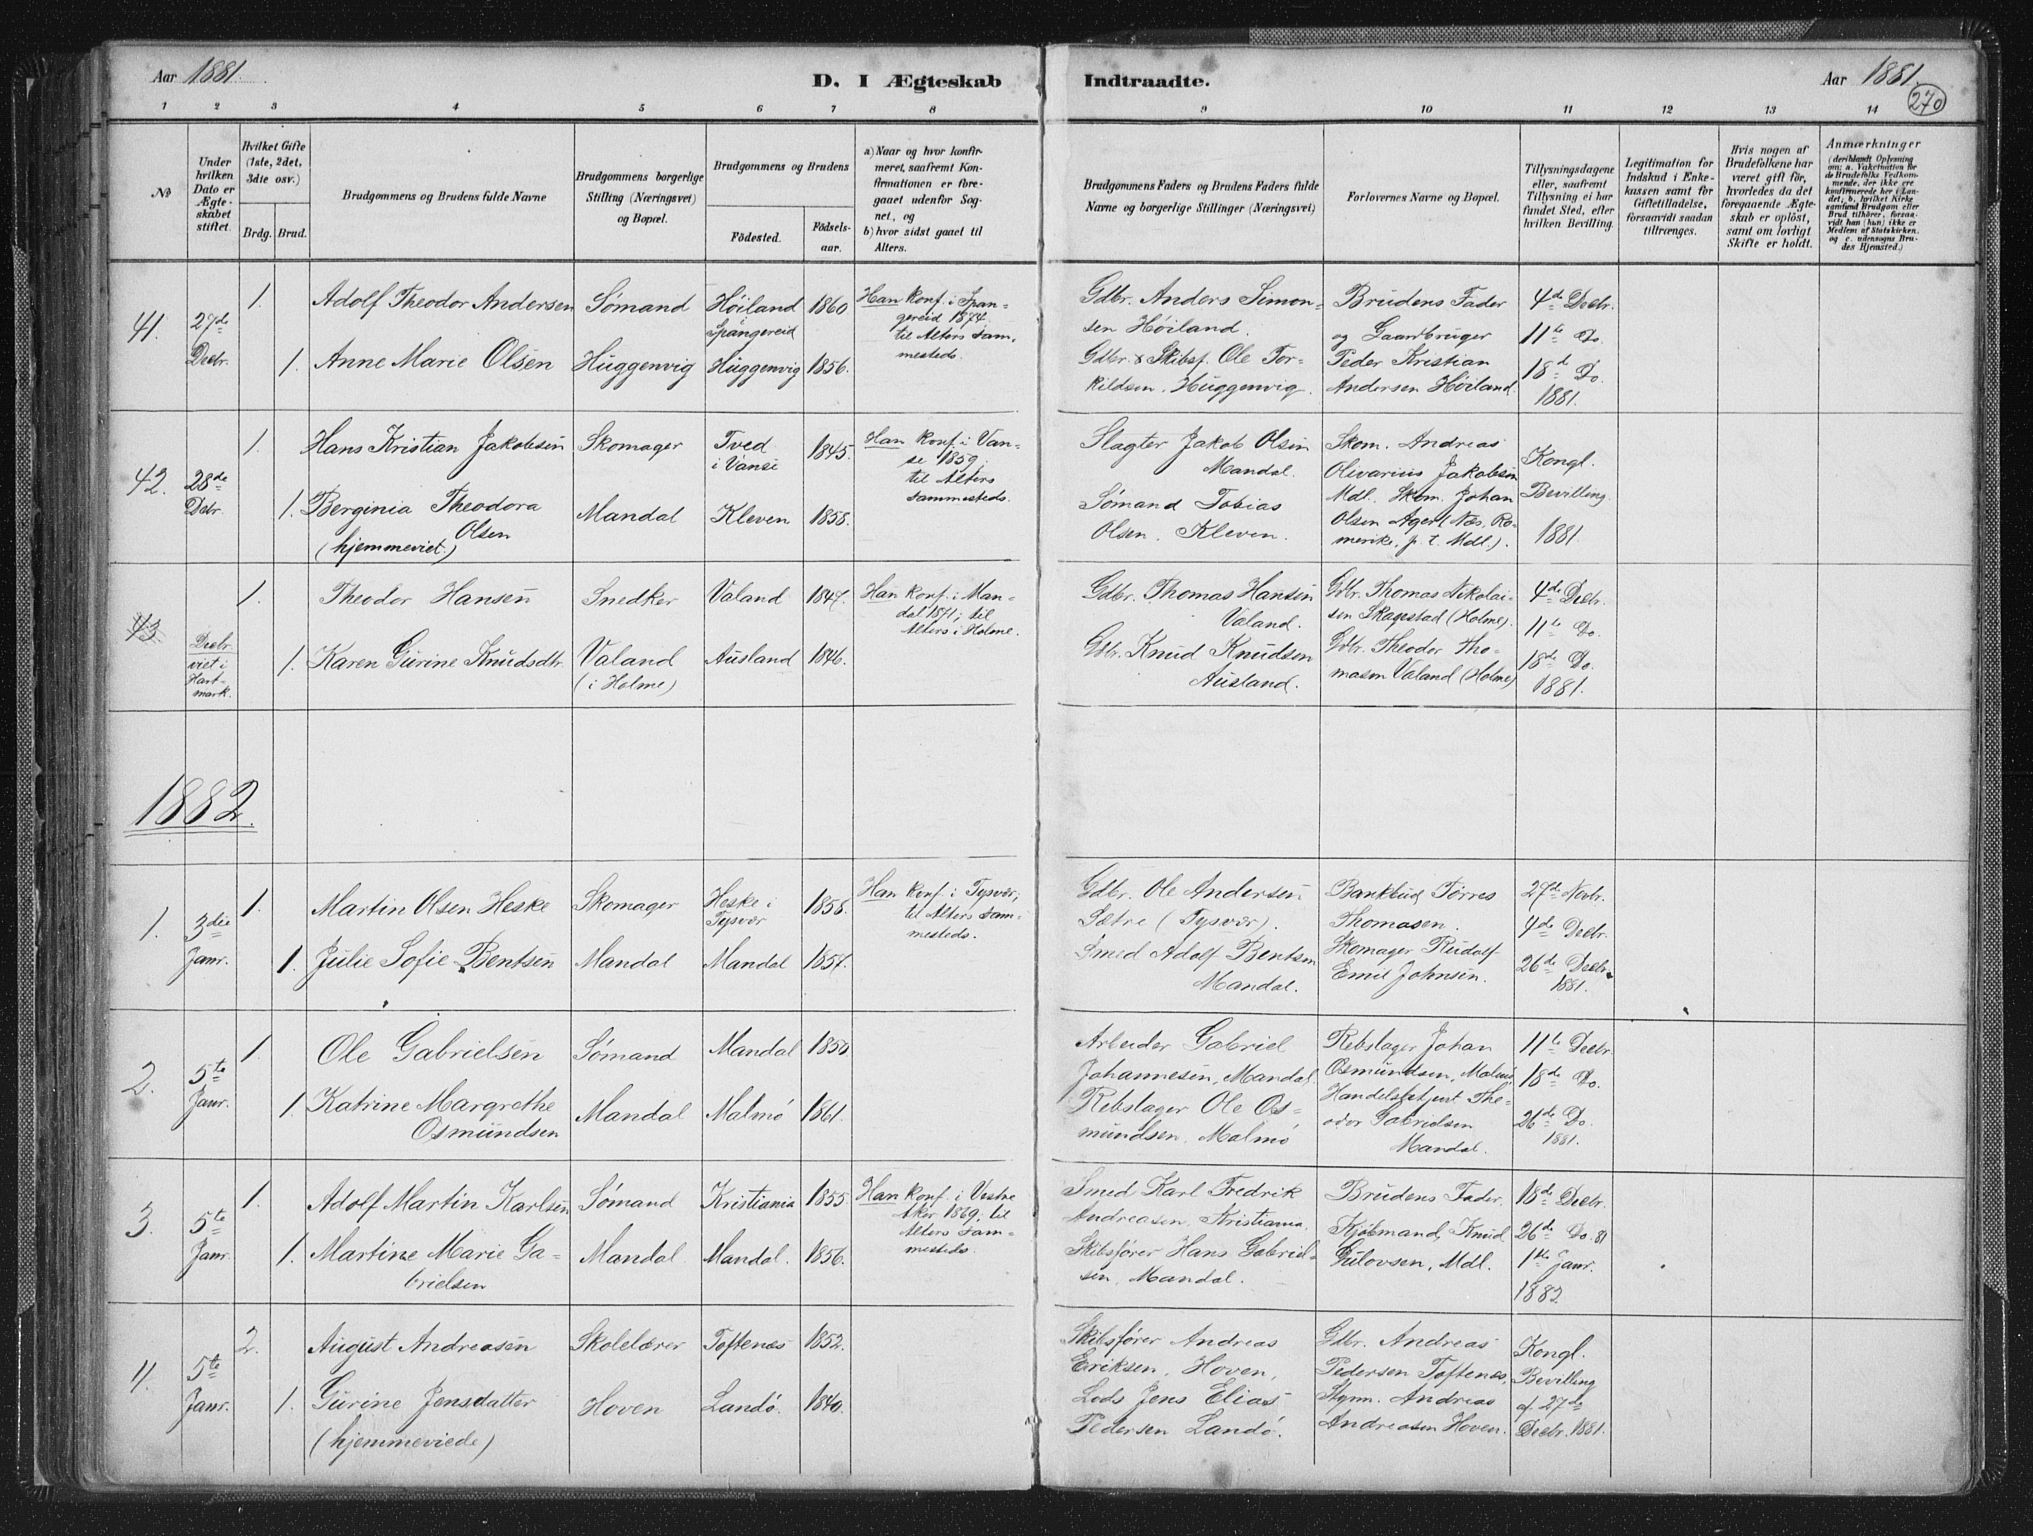 Aar 1881.
D. I Ægteskab
Indtraadte.
Aar 1881.
270
1 2 3 4 5 6 7 8
9 10 11 12 13 14
No
Under hvilken Dato er Ægteskabet stiftet.
Hvilket Gifte (1ste, 2det, 3die osv.)
Brdg. Brud.
Brudgommens og Brudens fulde Navne
Brudgommens borgerlige Stilling (Næringsvei) og Bopæl.
Brudgommens og Brudens
Fødested. Fødselsaar.
a) Naar og hvor konfirmeret, saafremt Konfirmationen er foregaaet udenfor Sognet, og
b) hvor sidst gaaet til Alters.
Brudgommens Faders og Brudens Faders fulde Navne og borgerlige Stillinger (Næringsvei)
Forlovernes Navne og Bopæl.
Tillysningsdagene eller, saafremt Tillysning ei har fundet Sted, efter hvilken Bevilling.
Legitimation for Indskud i Enkekassen samt for Giftetilladelse, forsaavidt saadan tiltrænges.
Hvis nogen af Brudefolkene har været gift før, hvorledes da det foregaaende Ægteskab er opløst, samt om lovligt Skifte er holdt.
Anmærkninger
(deriblandt Oplysning om: a. Vakcination for de Brudefolks Vedkommende, der ikke ere konfirmerede her i Landet, b. hvilket Kirkesamfund Brudgom eller Brud tilhører, forsaavidt han (hun) ikke er Medlem af Statskirken. og c. udensogns Brudes Hjemsted.)
41.
27de
Decbr.
1.
Adolf Theodor Andersen
Sømand
Høiland
i
Spangereid
1860
Han konf. i Span-
gereid 1874.
til Alters sam-
mesteds.
1.
Anne Marie Olsen
Huggenvig
Huggenvig
1856.
Gdbr. Anders Simon-
sen Høiland.
Gdbr. & Skibsf. Ole Tor-
kildsen. Huggenvig.
Brudens Fader
og Gaardbruger
Peder Kristian
Andersen Høiland.
4de Decbr.
11te Do.
18de Do.
1881.
42.
28de
Debr.
1.
Hans Kristian Jakobsen
Skomager
Tved
i Vanse
1845.
Han konf. i Van-
se 1859.
til Alters
sammesteds.
1.
Berginia Theodora
Olsen
(hjemmeviet.)
Mandal
Kleven
1858.
Slagter Jakob Olsen
Mandal.
Sømand Tobias
Olsen. Kleven.
Skom. Andreas
Olivarius Jakobsen
Mdl. Skom. Johan
Olsen Ager (Næs, Ro-
merike, p. t. Mdl.).
Kongl.
Bevilling
1881.
43.
Decbr.
viet i
Hart-
mark.
1.
Theodor Hansen
Snedker
Valand
1847.
Han konf. i Man-
dal 1871; til
Alters i Holme.
1.
Karen Gurine Knudsdtr.
Valand
(i Holme)
Ausland
1846.
Gdbr. Thomas Hansen
Valand.
Gdbr. Knud Knudsen
Ausland.
Gdbr. Thomas Nikolai-
sen Skagestad (Holme).
Gdbr. Theodor Tho-
masen Valand (Holme)
4de Decbr.
11te Do.
18de Do.
1881.
1882.
1.
3die
Janr.
1.
Martin Olsen Heske
Skomager
Heske i
Tysvær
1858.
Han konf. i Tysvær;
til Alters sam-
mesteds.
1.
Julie Sofie Bentsen
Mandal
Mandal
1857.
Gdbr. Ole Andersen
Sætre (Tysvær).
Smed Adolf Bentsen
Mandal.
Bankbud Tørres
Thomasen.
Skomager Rudolf
Emil Johnsen.
27de Novbr.
4de Decbr.
26de Decbr.
1881.
2.
5te
Janr.
1.
Ole Gabrielsen
Sømand
Mandal
1850
1.
Katrine Margrethe
Osmundsen
Mandal
Malmø
1861.
Arbeider Gabriel
Johannesen, Mandal.
Rebslager Ole Os-
mundsen. Malmø
Rebslager Johan
Osmundsen, Malmø
Handelsbetjent The-
odor Gabrielsen
Mandal.
11te Decbr.
18de Do.
26de Do.
1881.
3.
5te
Janr.
1.
Adolf Martin Karlsen
Sømand
Kristiania
1855.
Han konf. i Vestre
Aker 1869; til
Alters sam-
mesteds.
1.
Martine Marie Ga-
brielsen
Mandal
Mandal.
1856.
Smed Karl Fredrik
Andreasen, Kristiania.
Skibsfører Hans Gabriel-
sen, Mandal.
Brudens Fader,
Kjøbmand Knud
Gulovsen, Mdl.
18de Decbr.
26de Do. 81
1ste Janr.
1882
4.
5te
Janr.
2.
August Andreasen
Skolelærer
Toftenæs
1852.
1.
Gurine Jensdatter
(hjemmeviede)
Hoven
Landø.
1840.
Skibsfører Andreas
Eriksen, Hoven,
Lods Jens Elias
Pedersen Landø.
Gdbr. Andreas
Pedersen Toftenæs,
Stym. Andreas
Andreasen Hoven.
Kongl.
Bevilling
af 27de
Decbr. 1881.